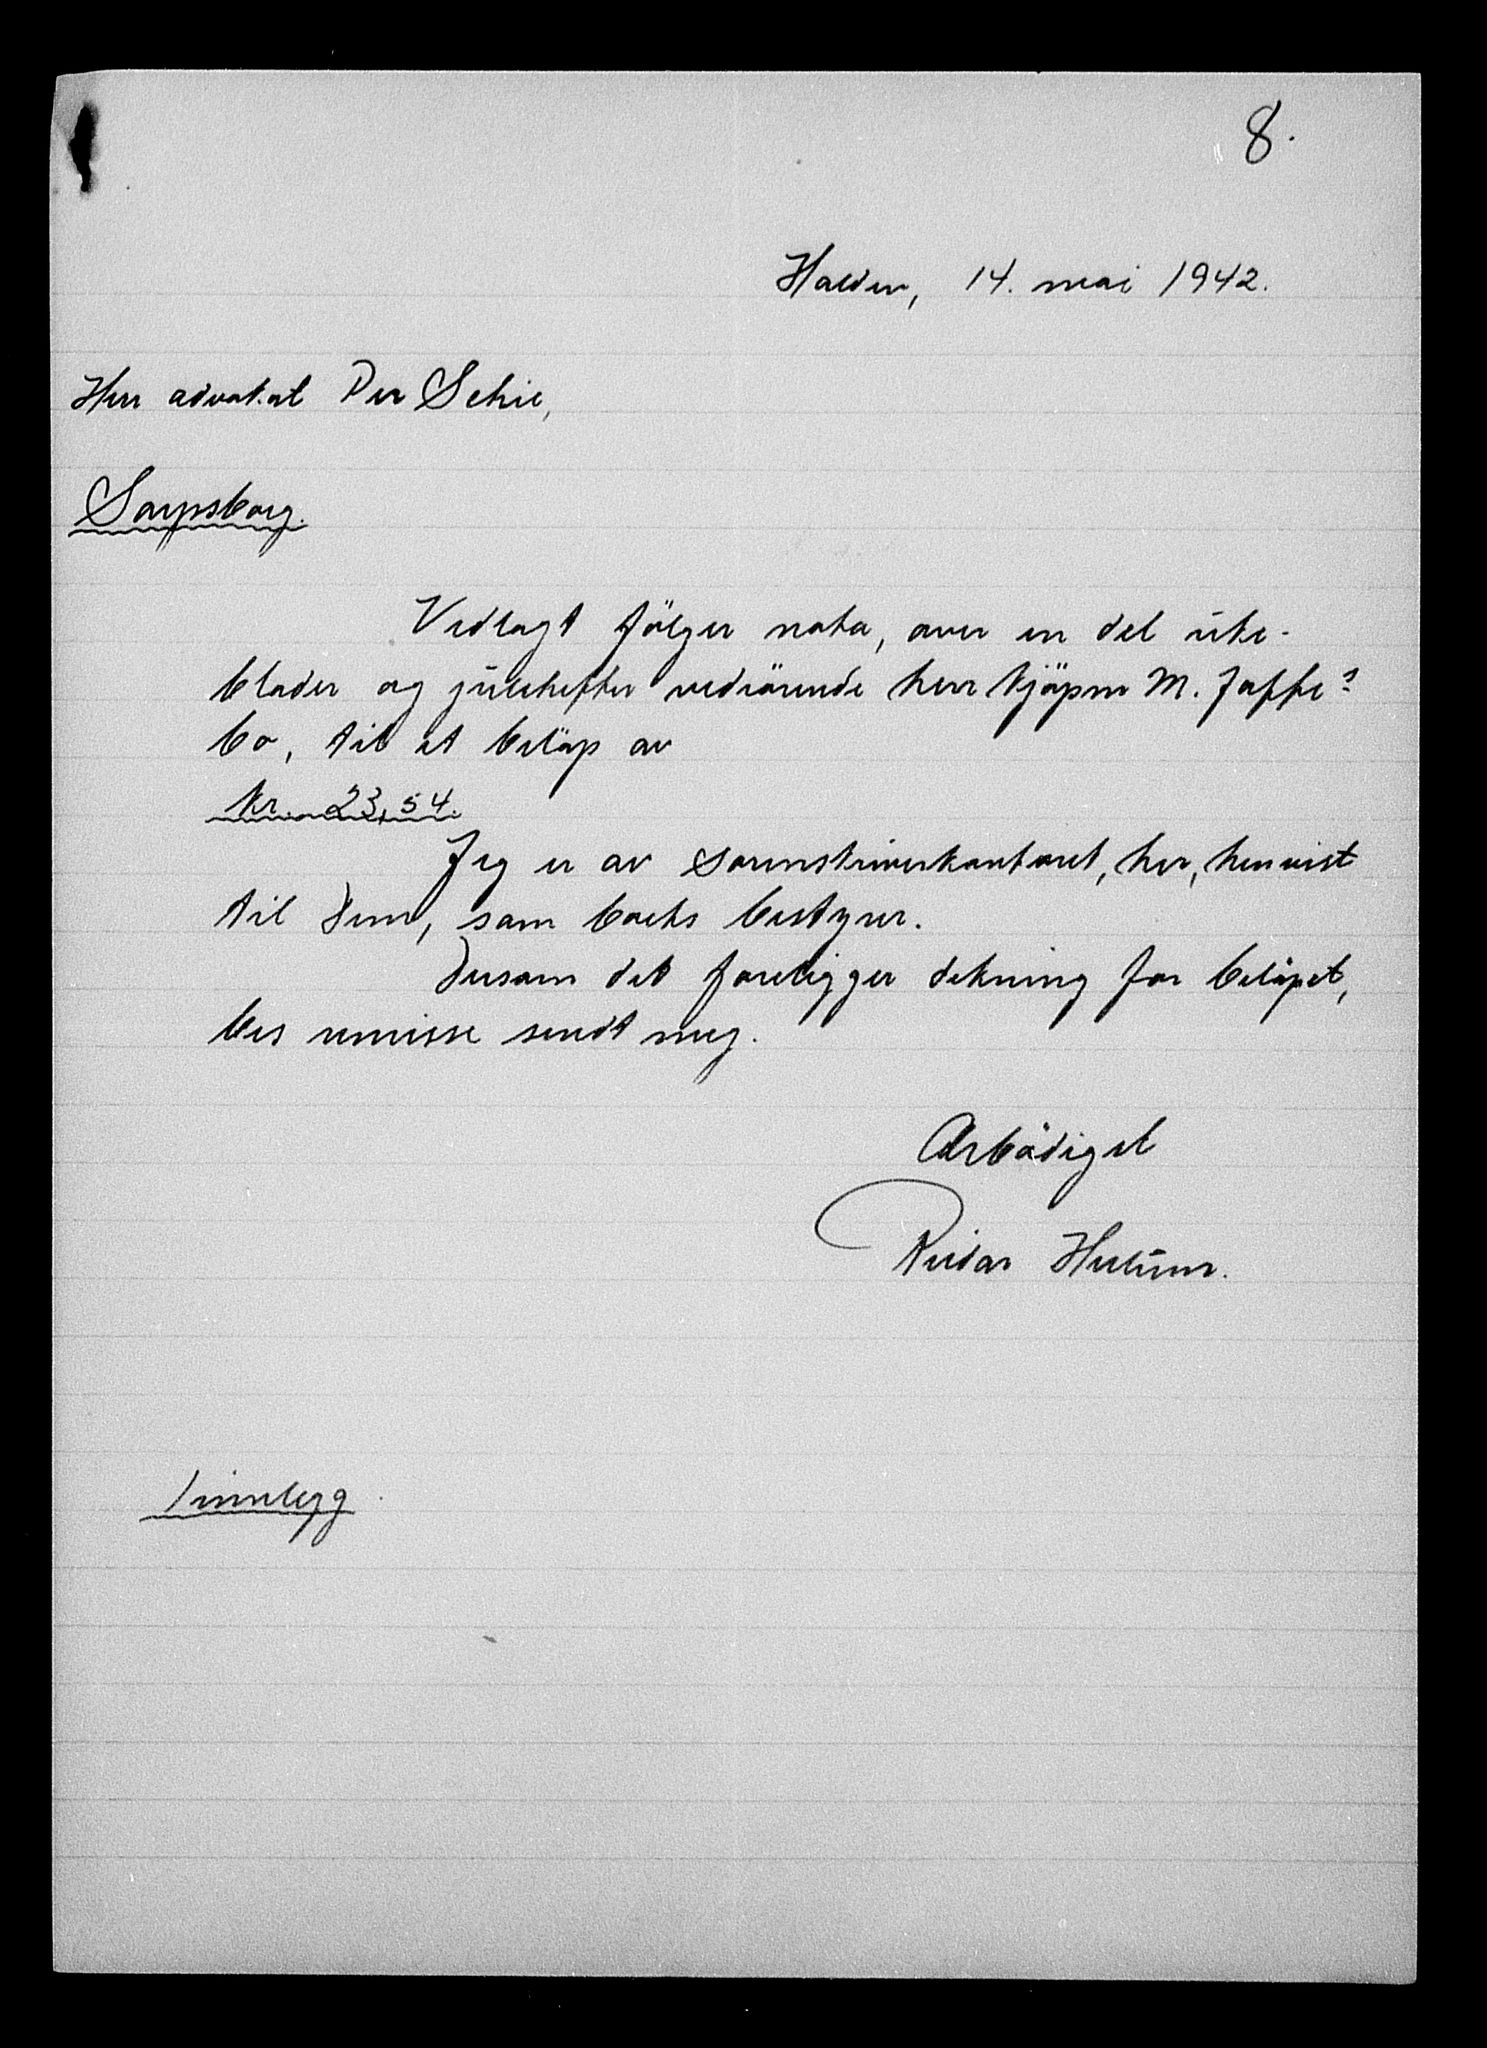 8.
Halden, 14. mai 1942.
Herr advokat Per Schie,
Sarpsborg.
Vedlagt følger nota, over en del uke-
blader og julehefter vedrörende herr kjöpm M. Jaffe's
bo, til et belöp av
kr. 23,54.
Jeg er av sorenskriverkontoret, her, henvist
til Dem, som boets bestyrer.
Dersom det foreligger dekning for belöpet,
bes remisse sendt meg.
Ærbödigst
Reidar
1 innlegg